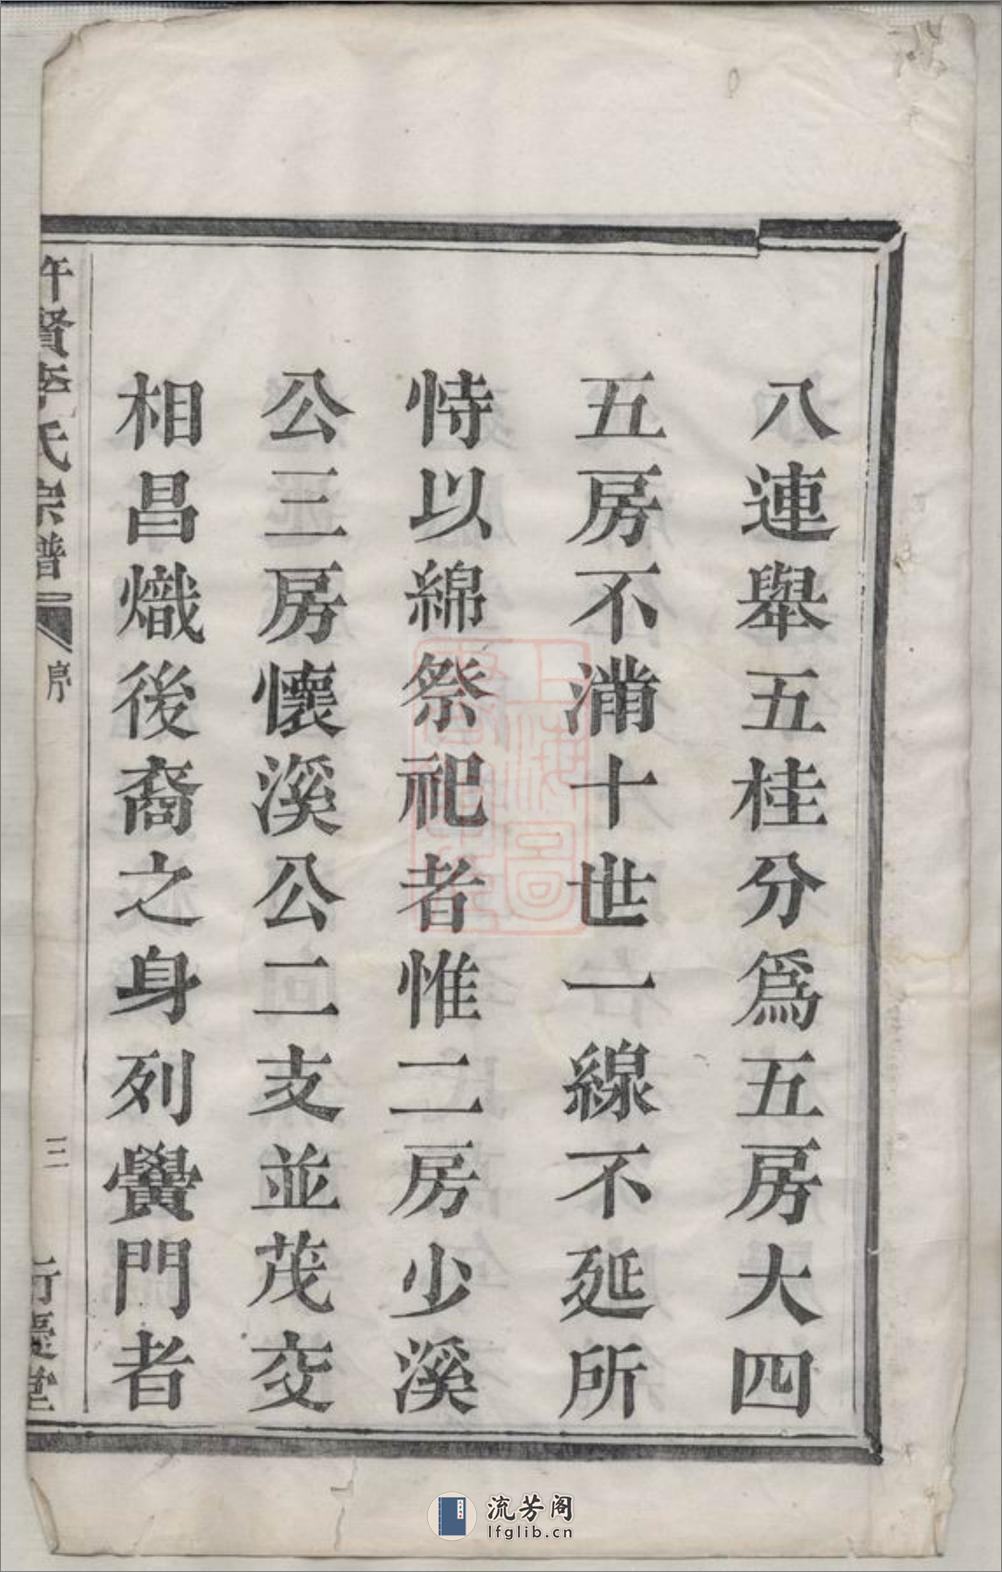 八連舉五桂分爲五房大四
五房不滿十世一線不延所
恃以綿祭祀者惟二房少溪
公三房懷溪公二支並茂交
相昌熾後裔之身列黌門者
許賢李氏宗譜
序
三
衍慶堂
流芳阁
lfglib.cn